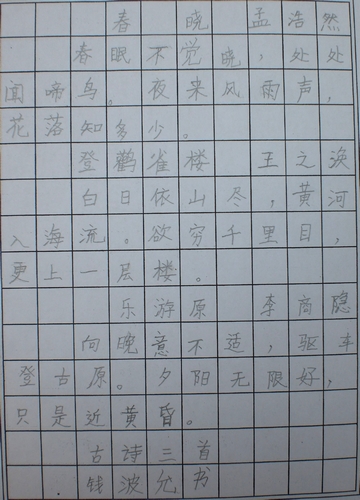 春 晓 孟浩然
春眠不觉晓，处处
闻啼鸟。夜来风雨声，
花落知多少。
登鹳雀楼 王之涣
白日依山尽，黄河
入海流。欲穷千里目，
更上一层楼。
乐游原 李商隐
向晚意不适，驱车
登古原。夕阳无限好，
只是近黄昏。
古诗三首
钱波允书